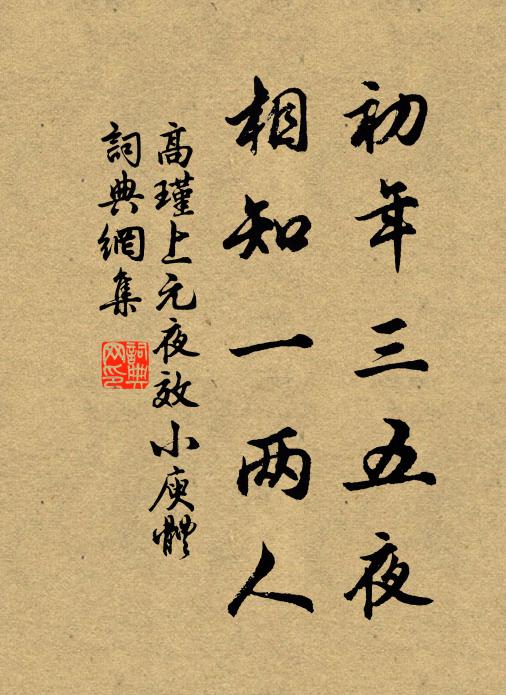 初年三五夜
相知一两人
高瑾上元夜效小庾體
詞典網集
詞典网印